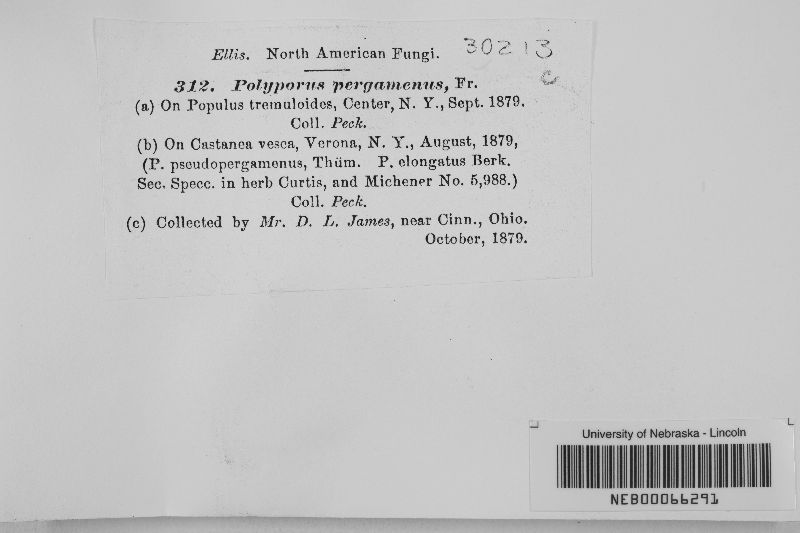 Ellis. North American Fungi. 30213
c
312. Polyporus pergamenus, Fr.
(a) On Populus tremuloides, Center, N. Y., Sept. 1879.
Coll. Peck.
(b) On Castanea vesca, Verona, N. Y., August, 1879,
(P. pseudopergamenus, Thüm. P. elongatus Berk.
Sec. Specc. in herb Curtis, and Michener No. 5,988.)
Coll. Peck.
(c) Collected by Mr. D. L. James, near Cinn., Ohio.
October, 1879.
University of Nebraska - Lincoln
NEB00066291